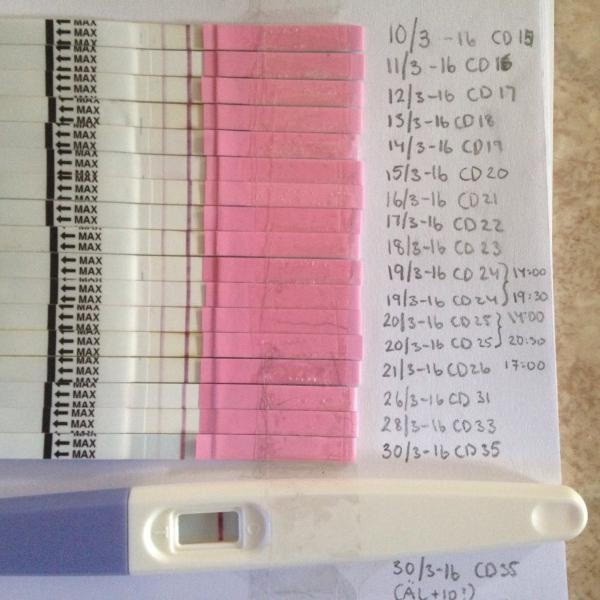 MAX
MAX
MAX
MAX
MAX
MAX
MAX
MAX
MAX
MAX
MAX
MAX
MAX
MAX
MAX
MAX
MAX
10/3 -16 CD 15
11/3-16 CD 16
12/3-16 CD 17
13/3-16 CD 18
14/3-16 CD 19
15/3-16 CD 20
16/3-16 CD 21
17/3-16 CD 22
18/3-16 CD 23
19/3-16 CD 24 } 14:00
19/3-16 CD 24 } 19:30
20/3-16 CD 25 } 14:00
20/3-16 CD 25 } 20:30
21/3-16 CD 26 17:00
26/3-16 CD 31
28/3-16 CD 33
30/3-16 CD 35
30/3-16 CD 35
(ÄL+10!)